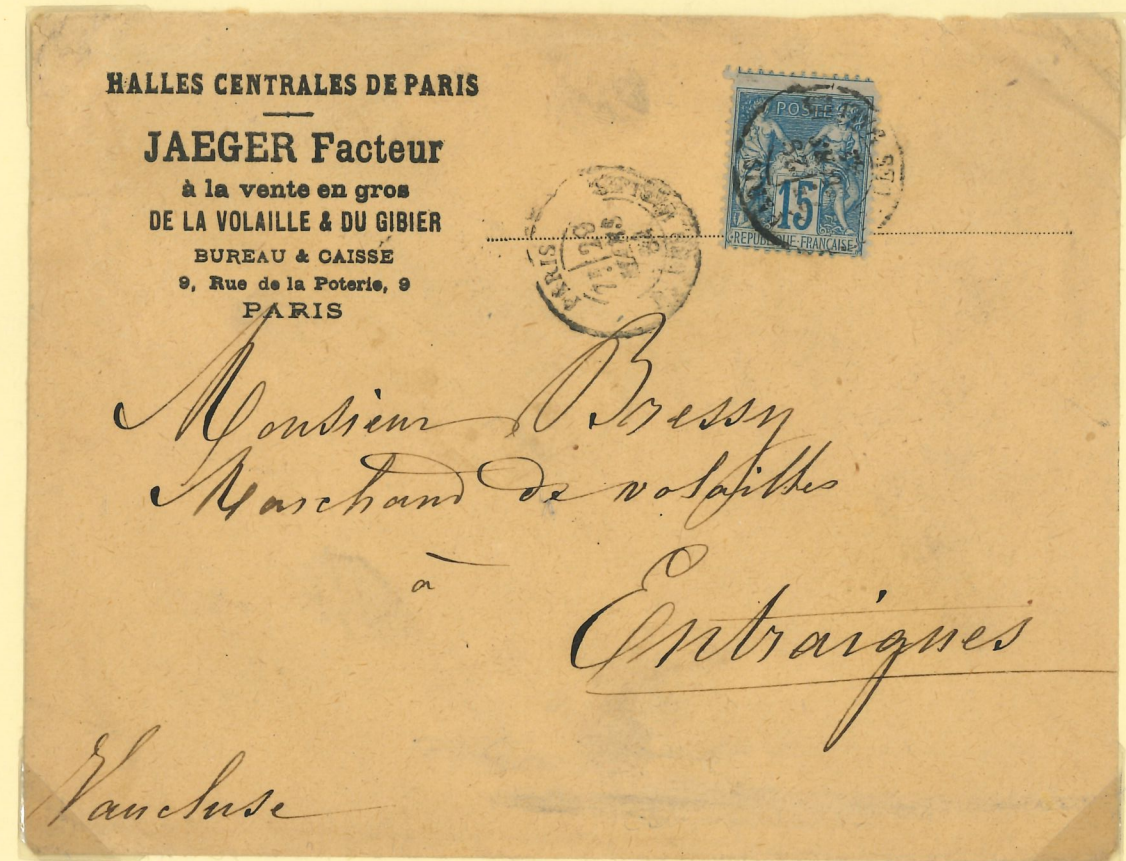 HALLES CENTRALES DE PARIS
JAEGER Facteur
à la vente en gros
DE LA VOLAILLE & DU GIBIER
BUREAU & CAISSE
9, Rue de la Poterie, 9
PARIS
POSTE
15
REPUBLIQUE FRANÇAISE
PARIS
20
MARS
Monsieur Bressy
Marchand de volailles
à
Entraigues
Vaucluse